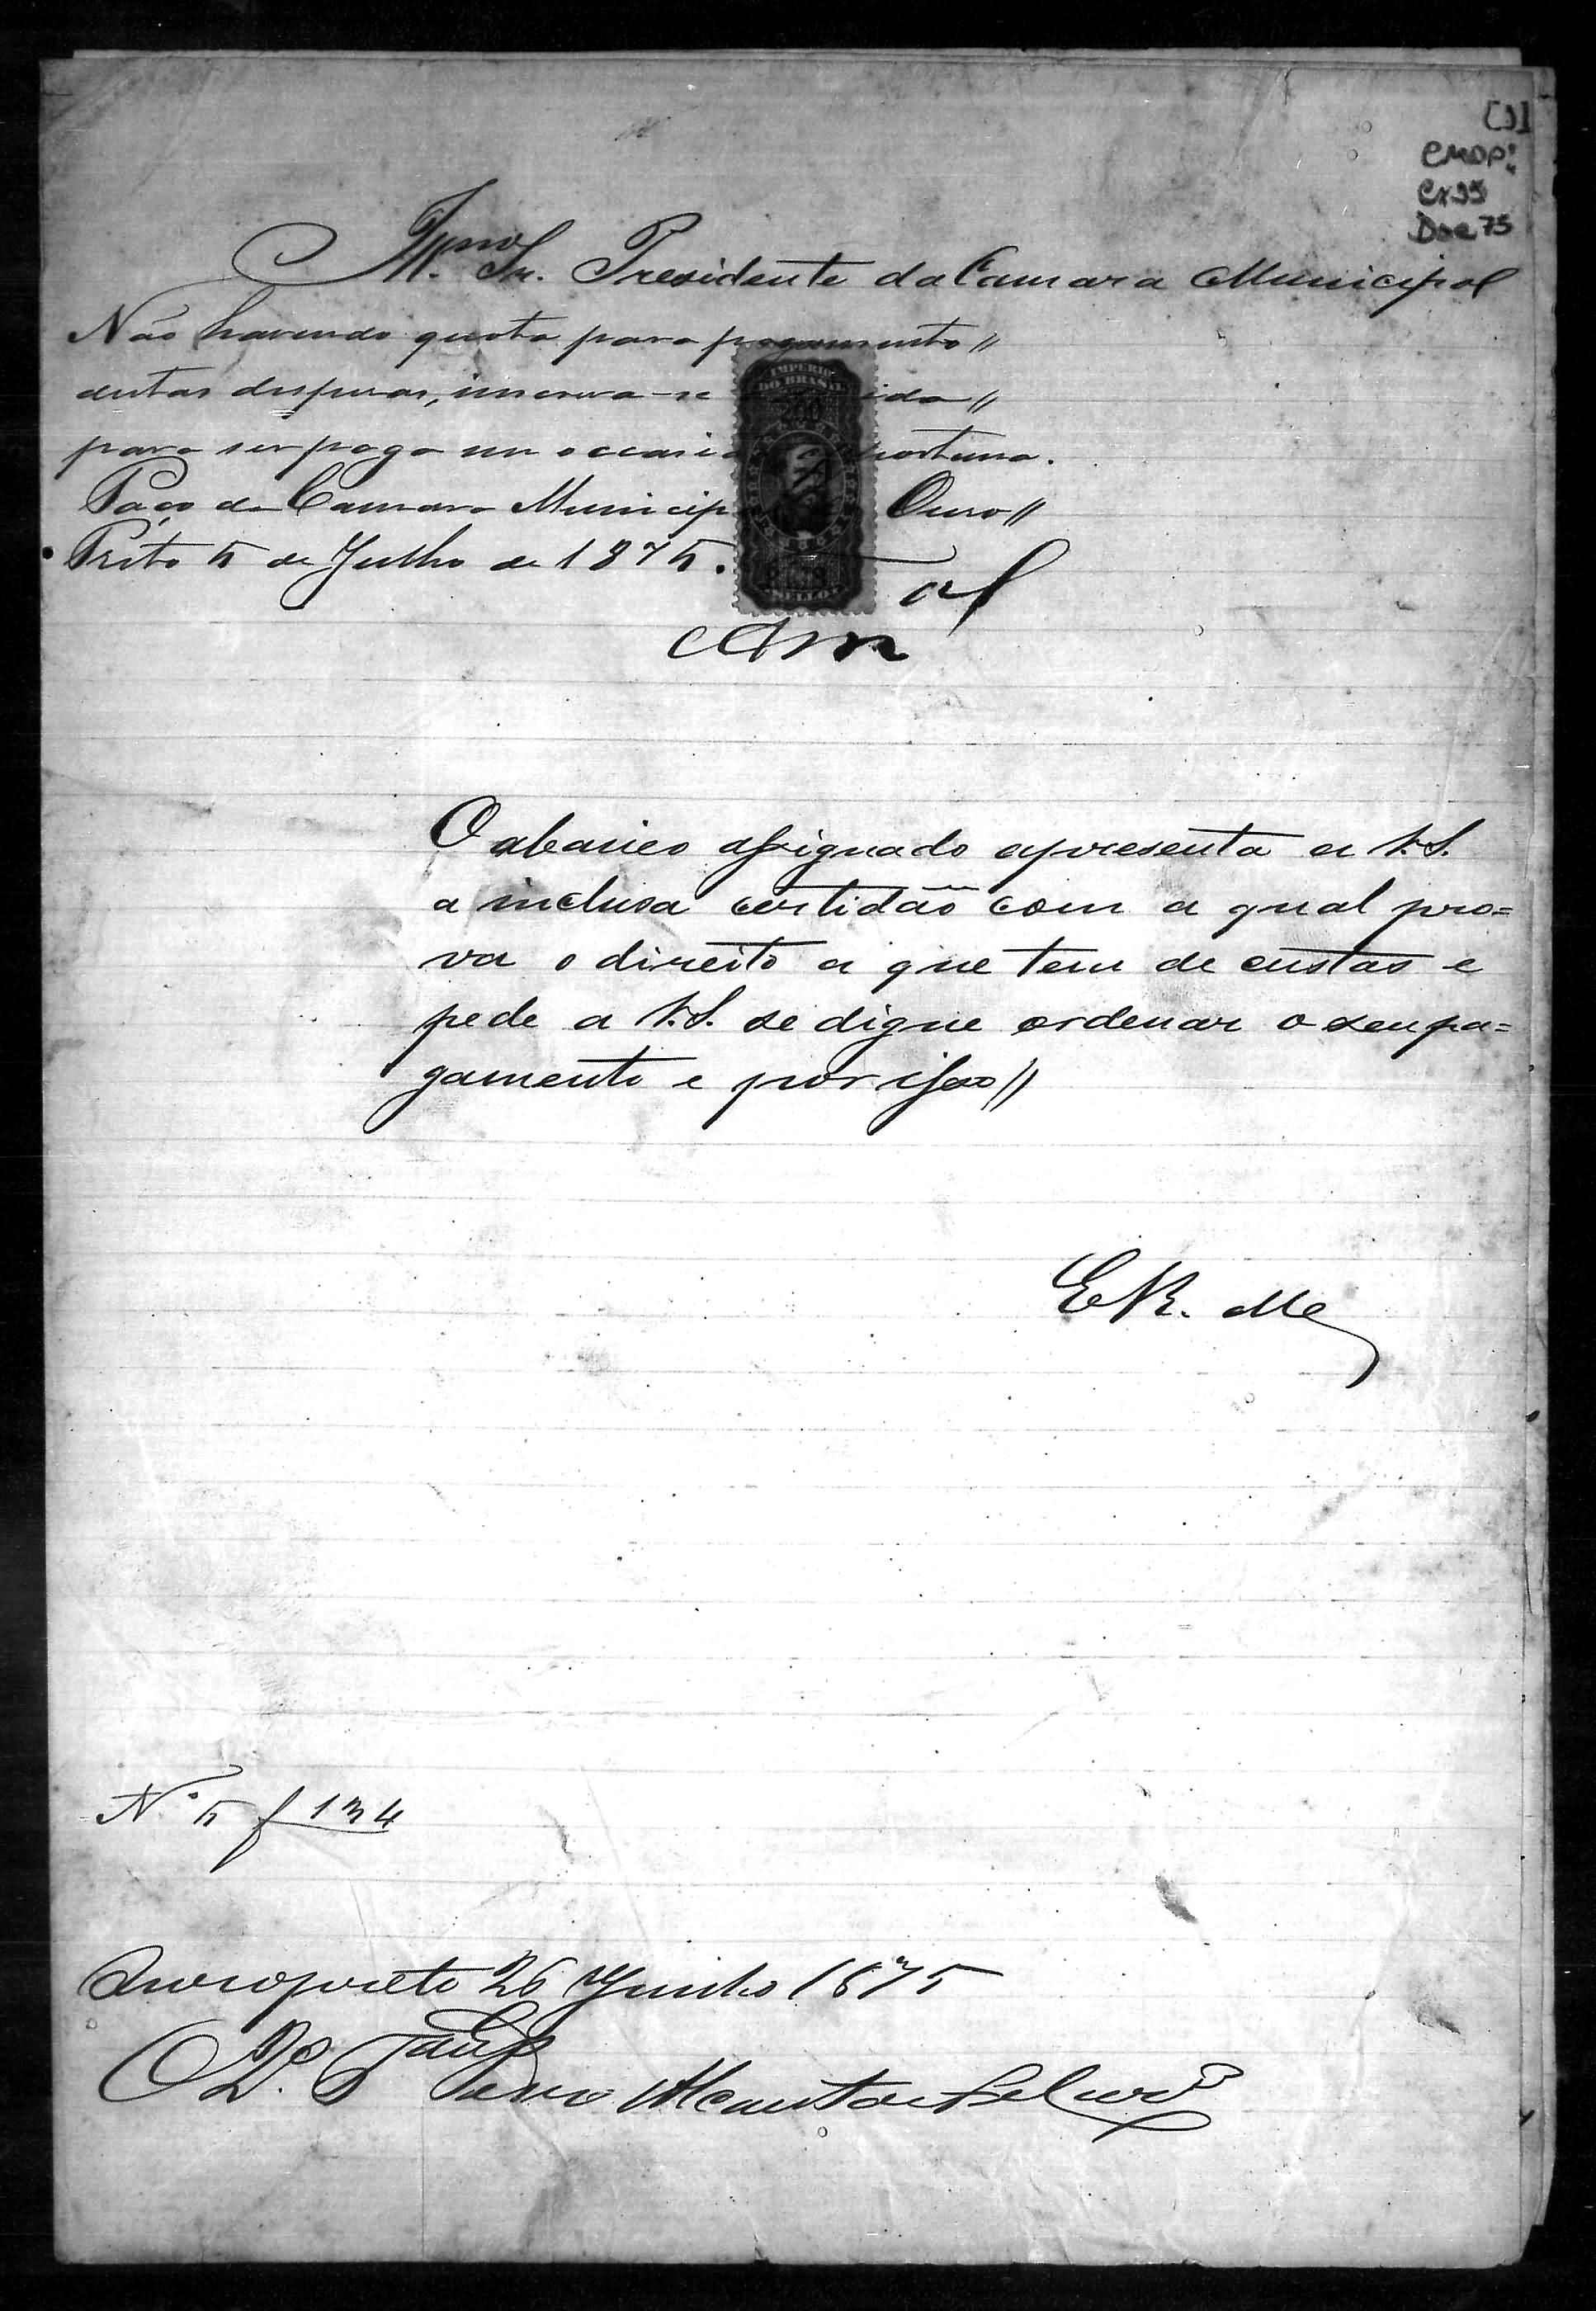 [1]
CMOP
Cx 95
Doc 75
Illmo. Sr. Presidente da Camara Municipal
Não havendo quota para pagamento //
destas despesas, inscreva-se ida //
para ser paga em occasi portuna.
Paço da Camara Municip Ouro //
Preto 5 de Julho de 1875.
IMPERIO
DO BRASIL
200
SELLO
O abaixo assignado apresenta a V.S.
a inclusa certidão com a qual pro=
va o direito a que tem de custas e
pede a V.S. se digne ordenar o seu pa=
gamento e por isso //
E. R. Mce
N.º 5 f 134
Ouropreto 26 Junho 1875
O D.